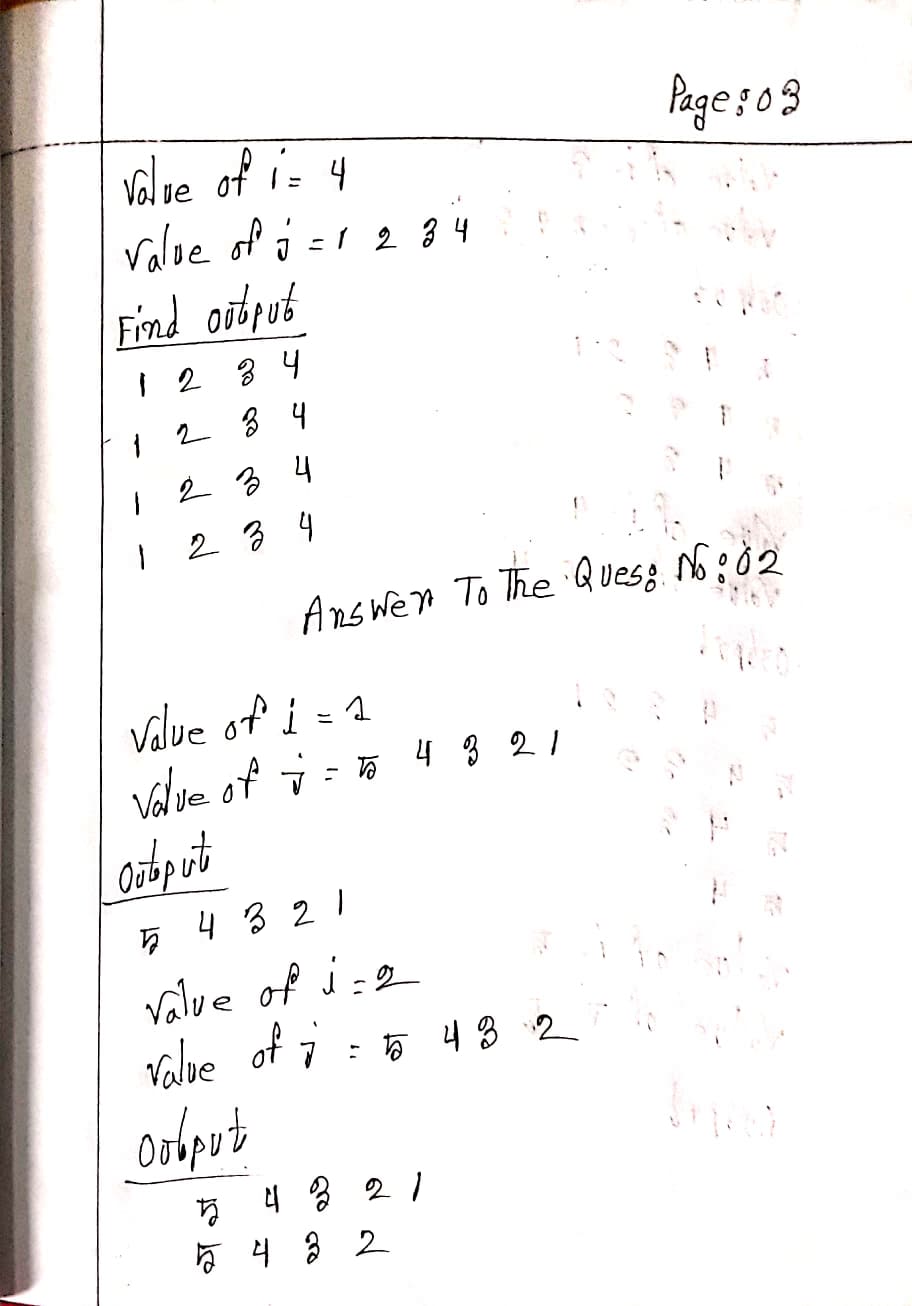 Page: 03
Value of i = 4
Value of j = 1 2 3 4
Find output
1 2 3 4
1 2 3 4
1 2 3 4
1 2 3 4
Answer To The Ques: No: 02
Value of i = 1
Value of j = 5 4 3 2 1
Output
5 4 3 2 1
Value of i = 2
Value of j = 5 4 3 2
Output
5 4 3 2 1
5 4 3 2